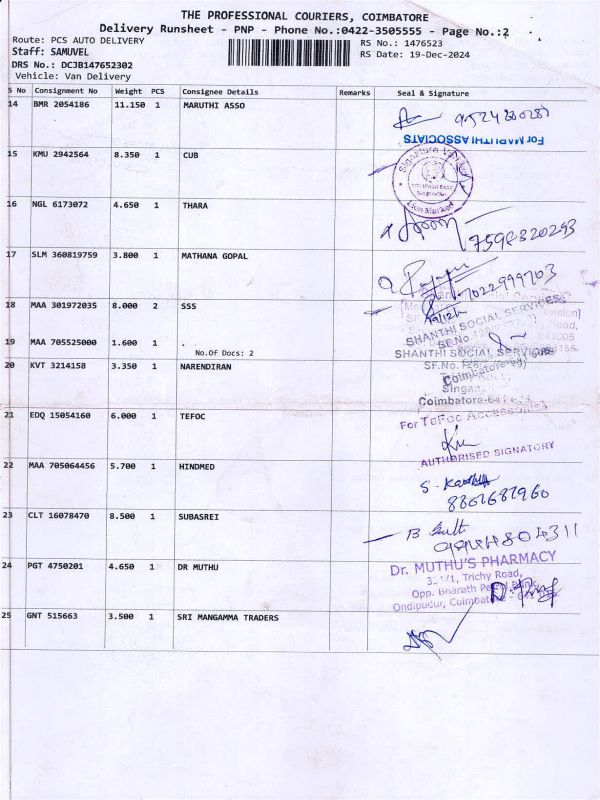 THE PROFESSIONAL COURIERS, COIMBATORE
Delivery Runsheet - PNP - Phone No.:0422-3505555 - Page No.:2
Route: PCS AUTO DELIVERY
RS No.: 1476523
Staff: SAMUVEL
RS Date: 19-Dec-2024
DRS No.: DCJB147652302
Vehicle: Van Delivery
S No Consignment No Weight PCS Consignee Details Remarks Seal & Signature
14 BMR 2054186 11.150 1 MARUTHI ASSO
For MARUTHI ASSOCIATS
15 KMU 2942564 8.350 1 CUB
Signature
16 NGL 6173072 4.650 1 THARA
7598320293
17 SLM 360819759 3.800 1 MATHANA GOPAL
7022999703
18 MAA 301972035 8.000 2 SSS
SHANTHI SOCIAL SERVICES
19 MAA 705525000 1.600 1 .
No.Of Docs: 2
SHANTHI SOCIAL SERVICES
20 KVT 3214158 3.350 1 NARENDIRAN
Coimbatore
21 EDQ 15054160 6.000 1 TEFOC
For TEFOC ACCESSORIES
AUTHORISED SIGNATORY
22 MAA 705064456 5.700 1 HINDMED
23 CLT 16078470 8.500 1 SUBASREI
24 PGT 4750201 4.650 1 DR MUTHU
Dr. MUTHU'S PHARMACY
321/1, Trichy Road,
Opp. Bharath Petrol Bunk,
Ondipudur, Coimbatore
25 GNT 515663 3.500 1 SRI MANGAMMA TRADERS